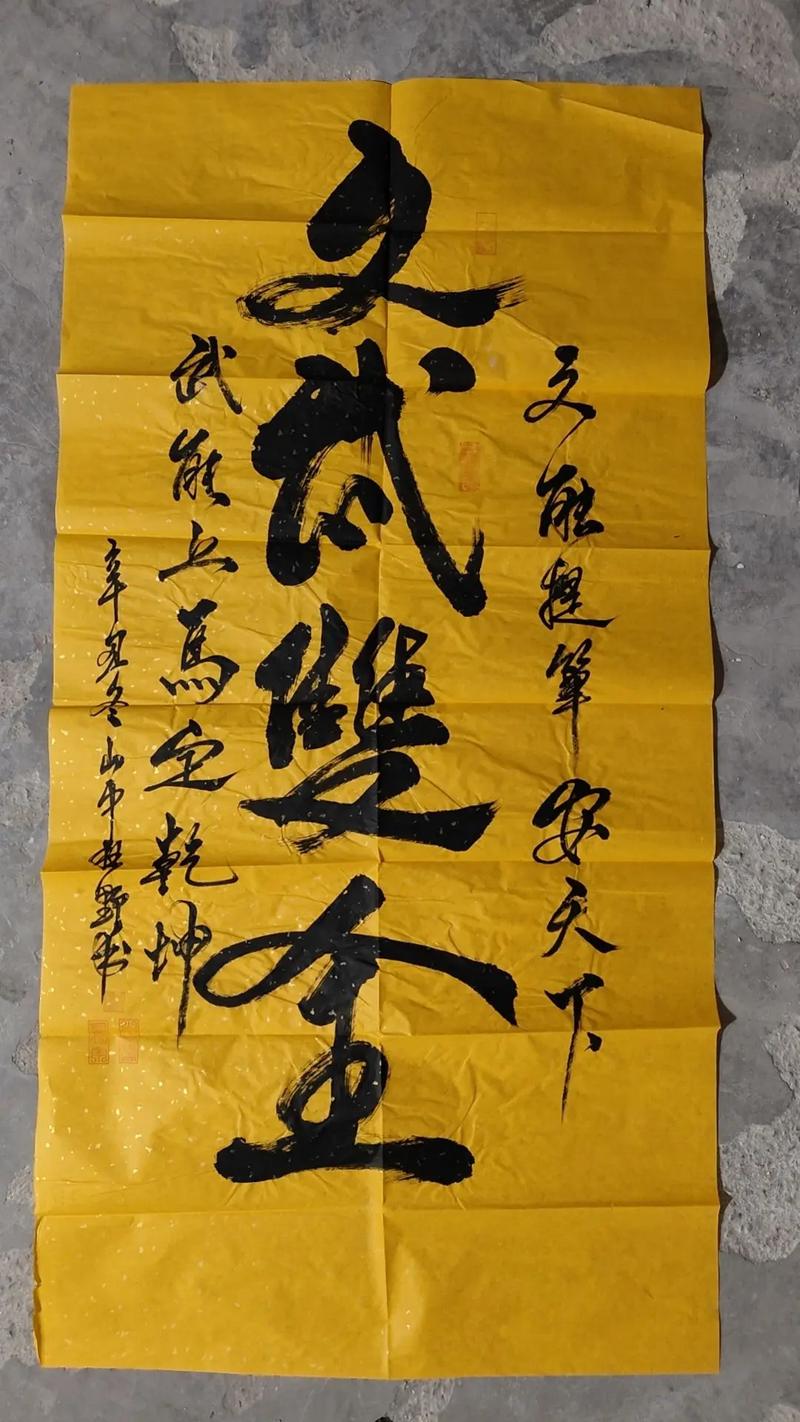 文能提筆安天下
文武雙全
武能上馬定乾坤
辛丑冬山中 野書